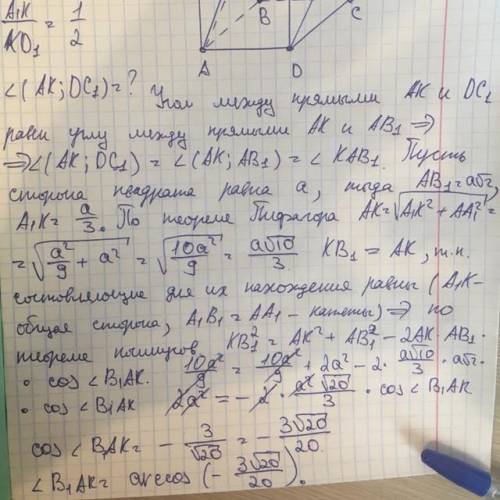 A₁K/KD₁ = 1/2
B
C
A
D
∠(AK; DC₁) = ? Угол между прямыми AK и DC₁
равен углу между прямыми AK и AB₁ ⇒
⇒ ∠(AK; DC₁) = ∠(AK; AB₁) = ∠KAB₁. Пусть
сторона квадрата равна a, тогда AB₁ = a√2,
A₁K = a/3. По теореме Пифагора AK = √(A₁K² + AA₁²) =
= √(a²/9 + a²) = √(10a²/9) = a√10/3 KB₁ = AK, т.к.
составляющие для их нахождения равны (A₁K –
общая сторона, A₁B₁ = AA₁ – катеты) ⇒ по
теореме косинусов KB₁² = AK² + AB₁² – 2AK · AB₁ ·
· cos∠B₁AK. 10a²/9 = 10a²/9 + 2a² – 2 · a√10/3 · a√2 ·
· cos∠B₁AK 2a² = – 2 · a²√20/3 · cos∠B₁AK
cos∠B₁AK = – 3/√20 = – 3√20/20
∠B₁AK = arccos(– 3√20/20).